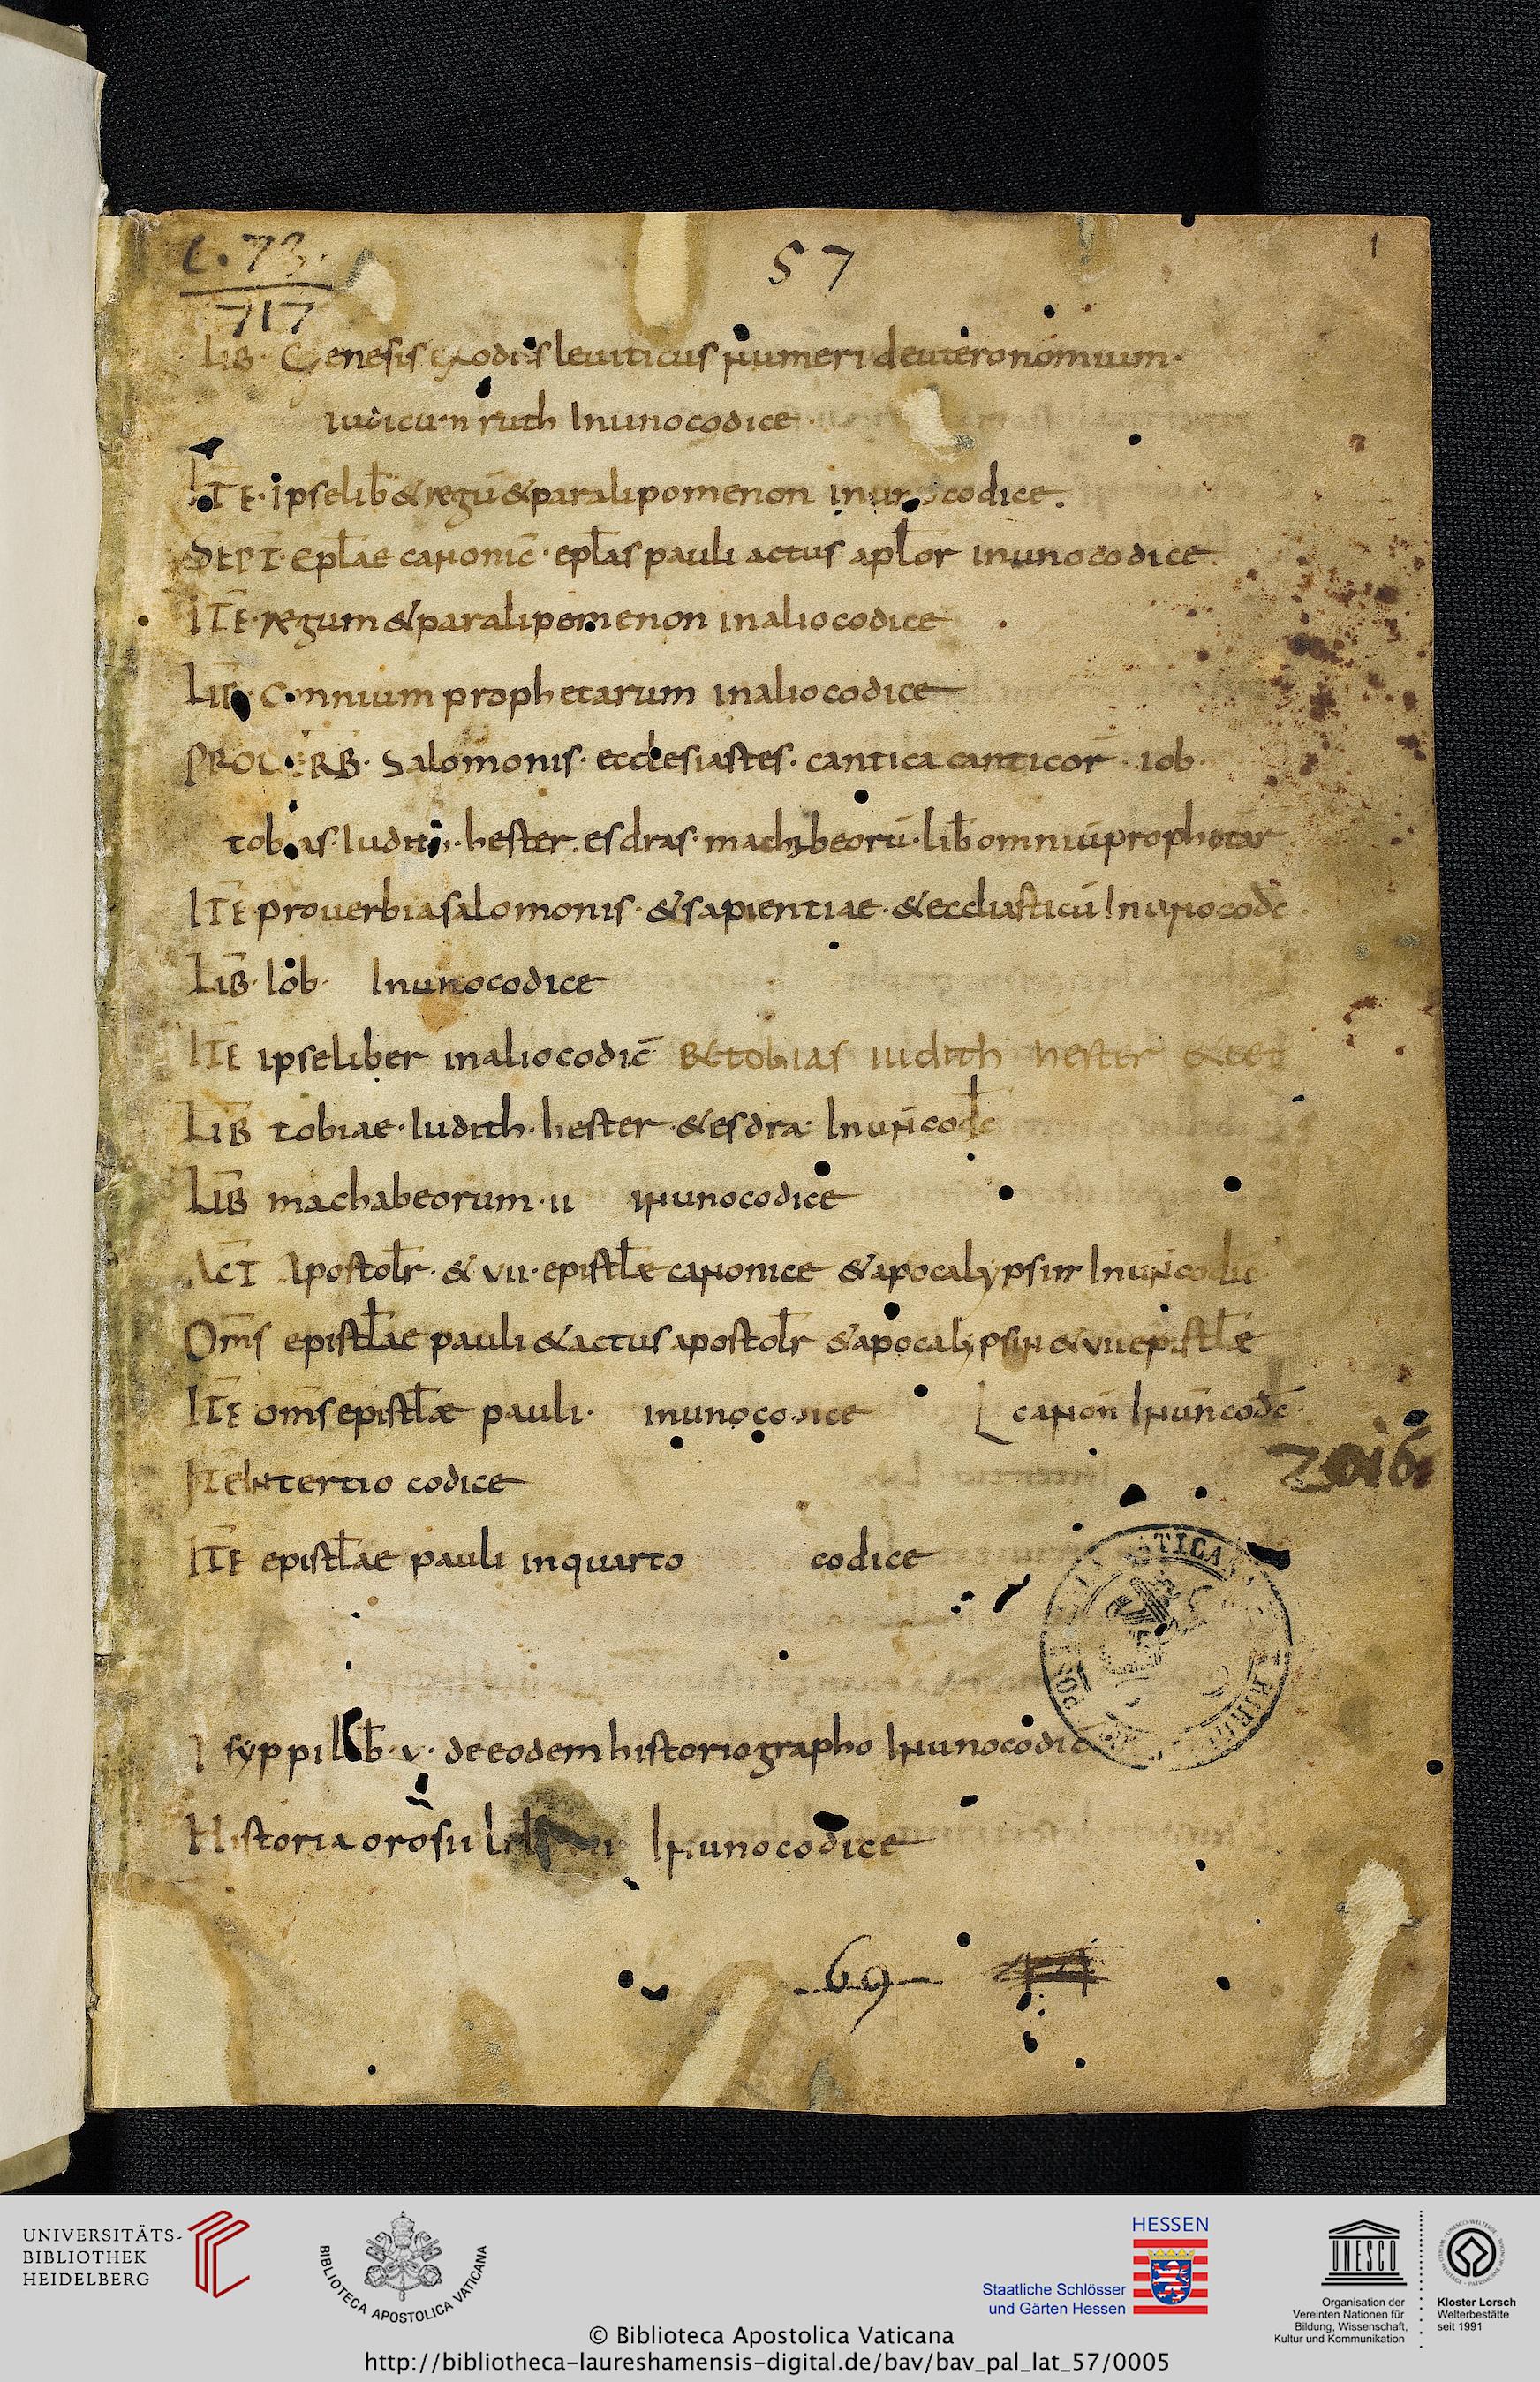 C. 73.
717
57
1
LIB̅· Genesis exodus leuiticus numeri deuteronomium·
iudicum ruth Inunocodice
ITE̅· ipselib̅ & regū & paralipomenon inunocodice.
SEPT̅· Epl̅ae canonic̅· epl̅as pauli actus apl̅or inunocodice
ITE̅ regum & paralipomenon inaliocodice
LIB̅ omnium prophetarum inaliocodice
PROUERB· Salomonis· ecclesiastes· cantica canticor̅· iob·
tobias· Iudith· hester· esdras· machabeorū· lib̅ omniū prophetar
ITE̅ prouerbia salomonis· & sapientiae· & eccliasticū Inunocod̅c·
LIB̅· Iob· Inunocodice
ITE̅ ipseliber inaliocodic̅ & tobias iudith hester
LIB̅ tobiae· Iudith· hester· & esdra· Inun̅cod̅c
LIB̅ machabeorum· ii inunocodice
ACT̅ Apostol̅r· & vii· epistl̅æ canonice & apocalypsin Inun̅codic
Om̅s epistl̅ae pauli & actus apostol̅r & apocalypsin & vii epistl̅æ
ITE̅ om̅s epistl̅æ pauli· inunocodice
canon̅ Inun̅cod̅c·
2016
ITE̅ Intertio codice
ITE̅ epistl̅ae pauli inquarto codice
I syppi lib̅· v· deeodem historiographo Inunocodic
Historia orosii Inunocodice
69
UNIVERSITÄTS-
BIBLIOTHEK
HEIDELBERG
BIBLIOTECA APOSTOLICA VATICANA
HESSEN
Staatliche Schlösser
und Gärten Hessen
UNESCO
Organisation der
Vereinten Nationen für
Bildung, Wissenschaft,
Kultur und Kommunikation
Kloster Lorsch
Welterbestätte
seit 1991
© Biblioteca Apostolica Vaticana
http://bibliotheca-laureshamensis-digital.de/bav/bav_pal_lat_57/0005